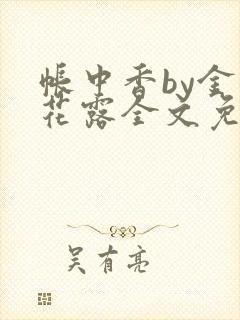 帐中香by金
花露全文免
吴有亮